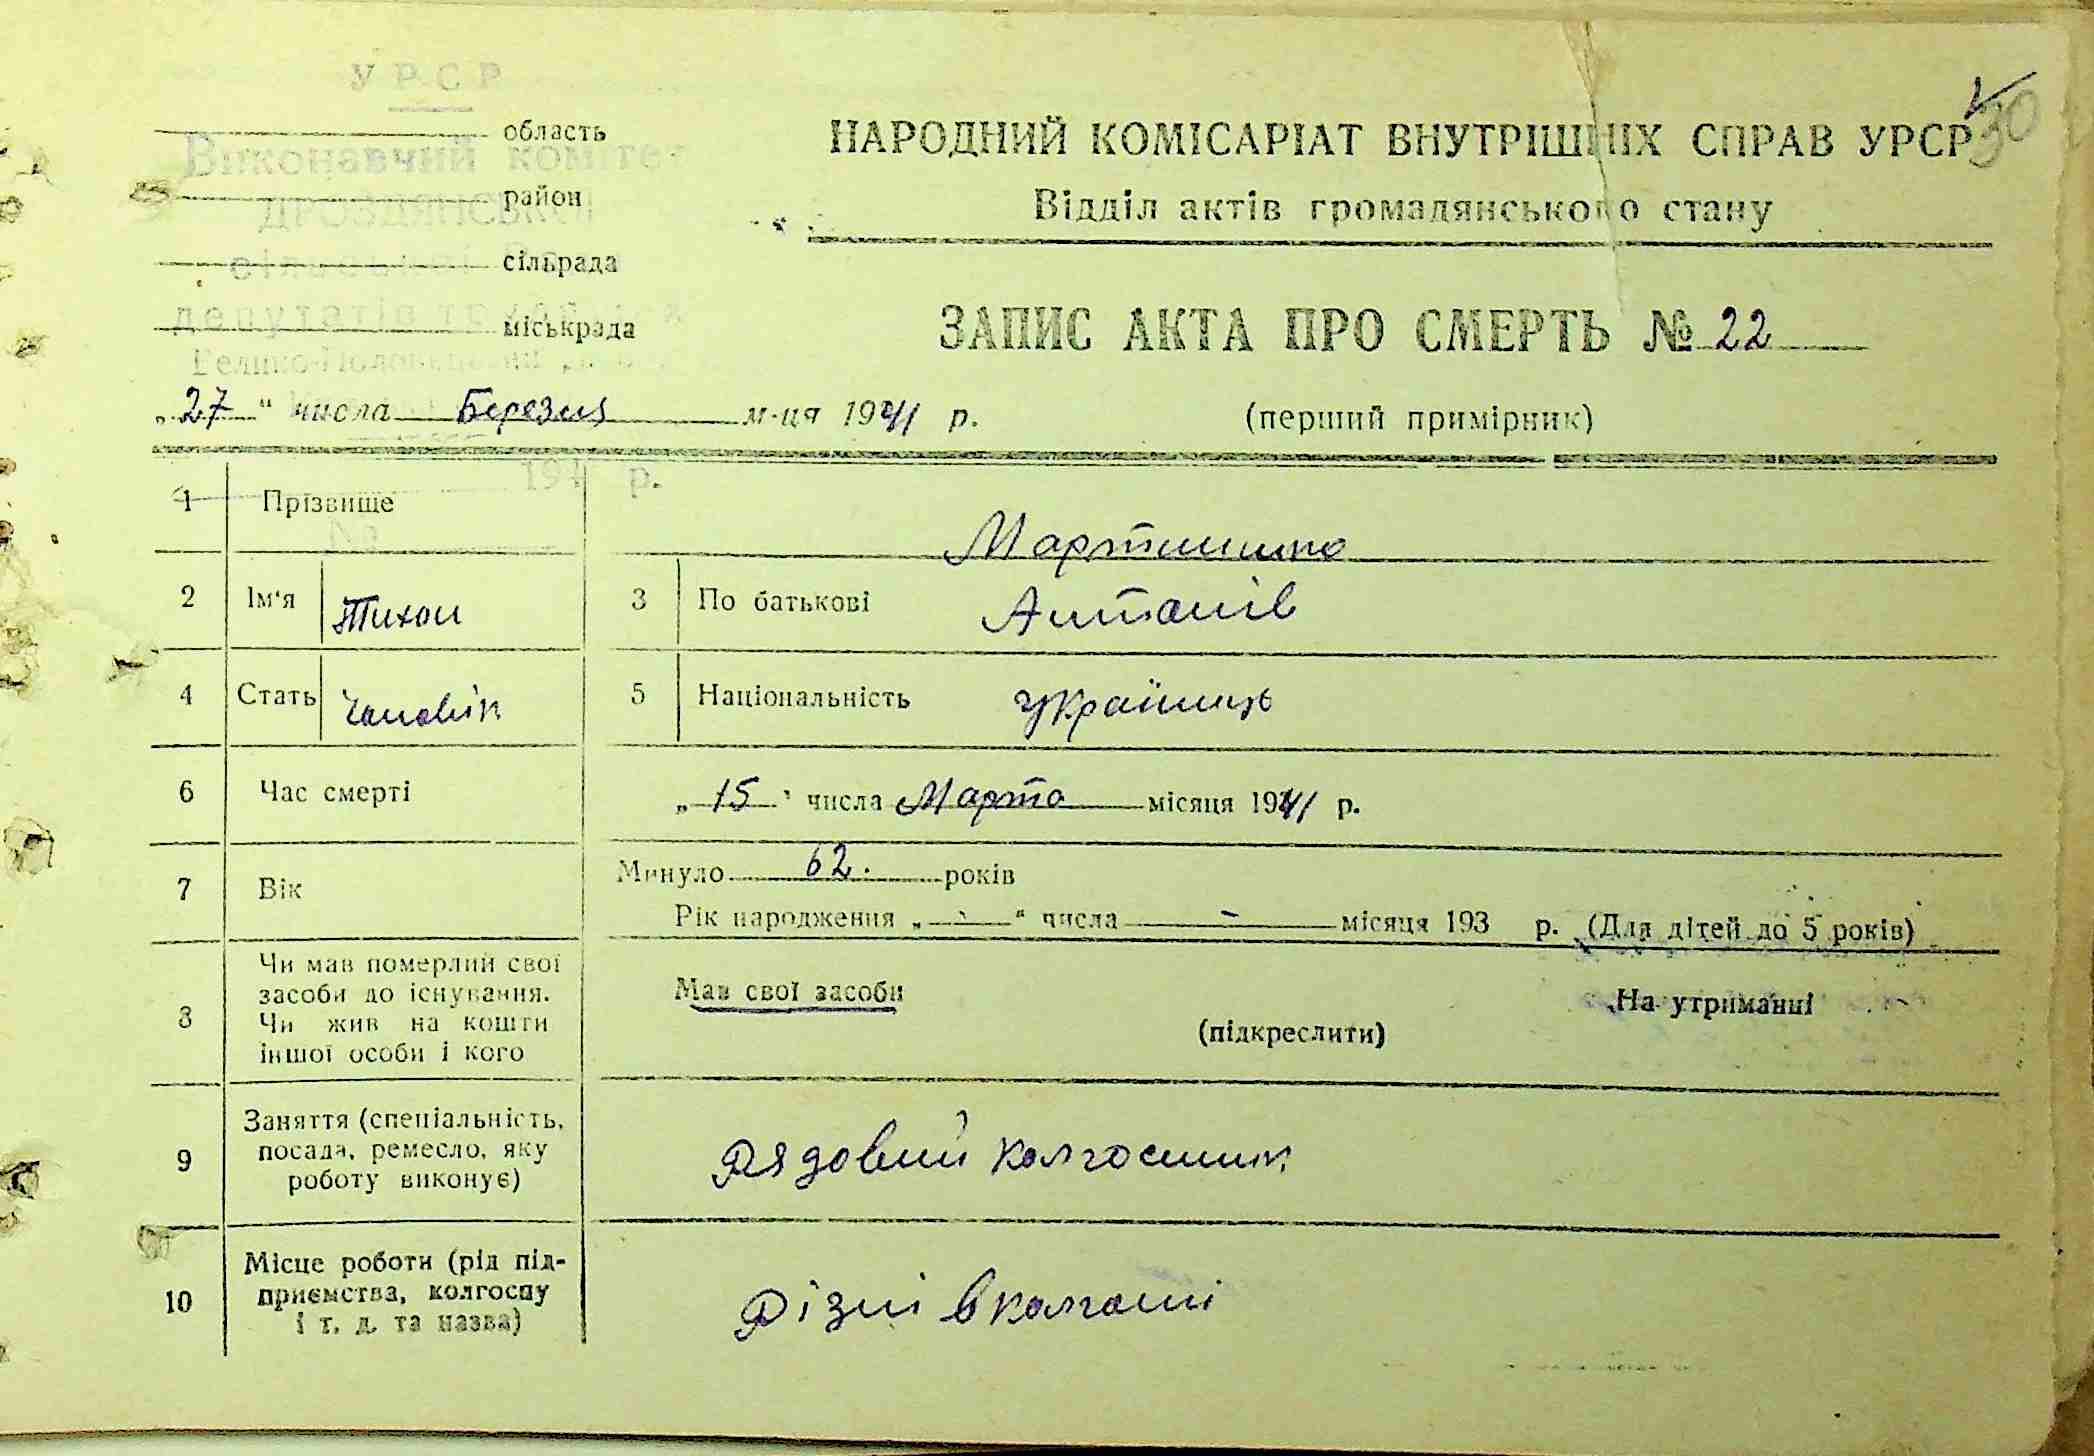 УРСР
область
Виконавчий коміте
район
ДРОЗДЯНСЬКОЇ
сільрада
депутатів
міськрада
НАРОДНИЙ КОМІСАРІАТ ВНУТРІШНІХ СПРАВ УРСР
30
Відділ актів громадянського стану
ЗАПИС АКТА ПРО СМЕРТЬ № 22
„27“ числа Березня м-ця 1941 р.
(перший примірник)
194 р.
1 Прізвище Мартиненко
№
2 Ім'я Тихон 3 По батькові Антонів
4 Стать Чоловік 5 Національність Українець
6 Час смерті „15“ числа Марта місяця 1941 р.
7 Вік Минуло 62. років
Рік народження „-“ числа - місяця 193 р. (Для дітей до 5 років)
8 Чи мав померлий свої
засоби до існування.
Чи жив на кошти
іншої особи і кого
Мав свої засоби
(підкреслити)
На утриманні
9 Заняття (спеціальність,
посада, ремесло, яку
роботу виконує)
Рядовий колгоспник
10 Місце роботи (рід під-
приємства, колгоспу
і т. д. та назва)
Різні в колгоспі